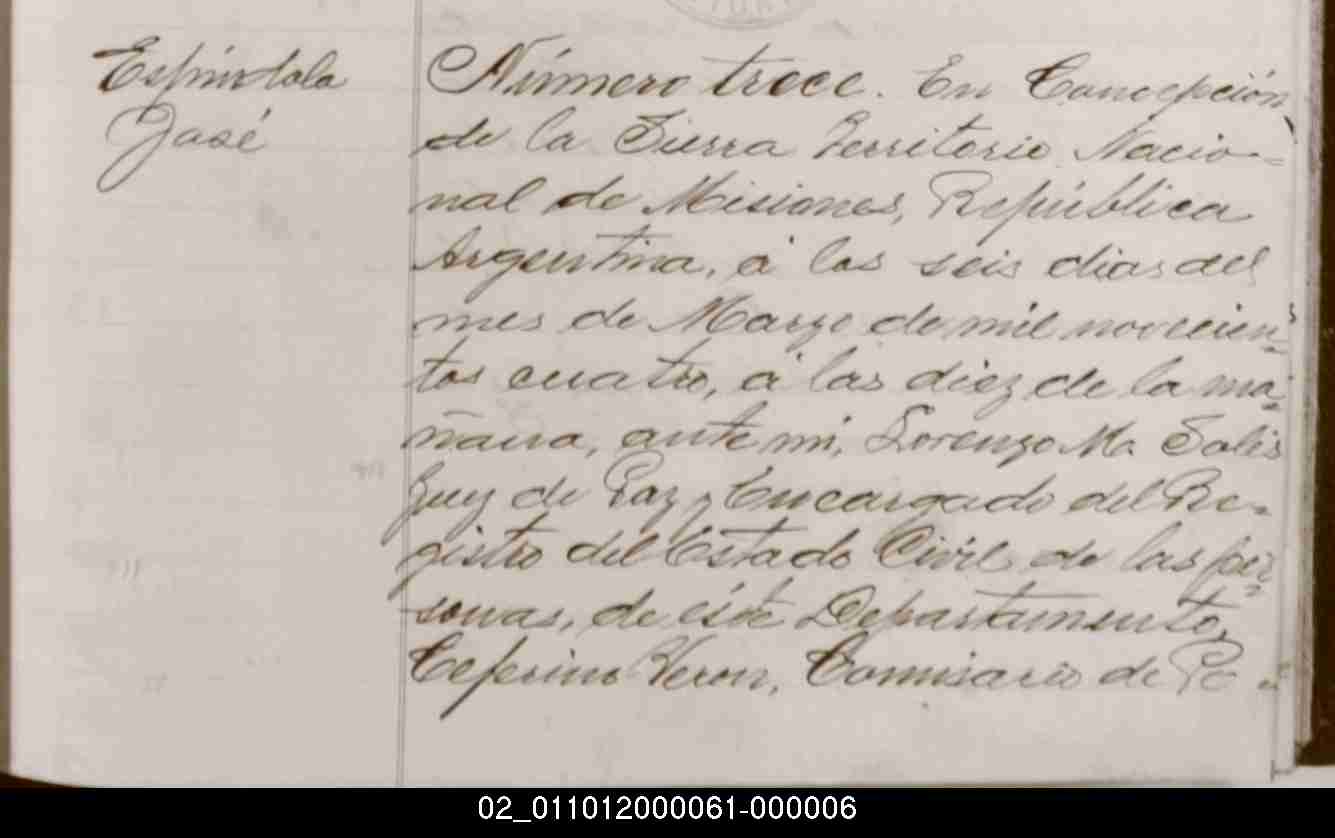 Espíndola
José
Número trece. En Concepción
de la Sierra Territorio Nacio-
nal de Misiones, República
Argentina, á los seis dias del
mes de Marzo de mil novecien-
tos cuatro, á las diez de la ma-
ñana, ante mi, Lorenzo Ma. Solis
Juez de Paz y Encargado del Re-
gistro del Estado Civil de las per-
sonas, de éste Departamento,
Ceferino Veron, Comisario de Po-
02_011012000061-000006